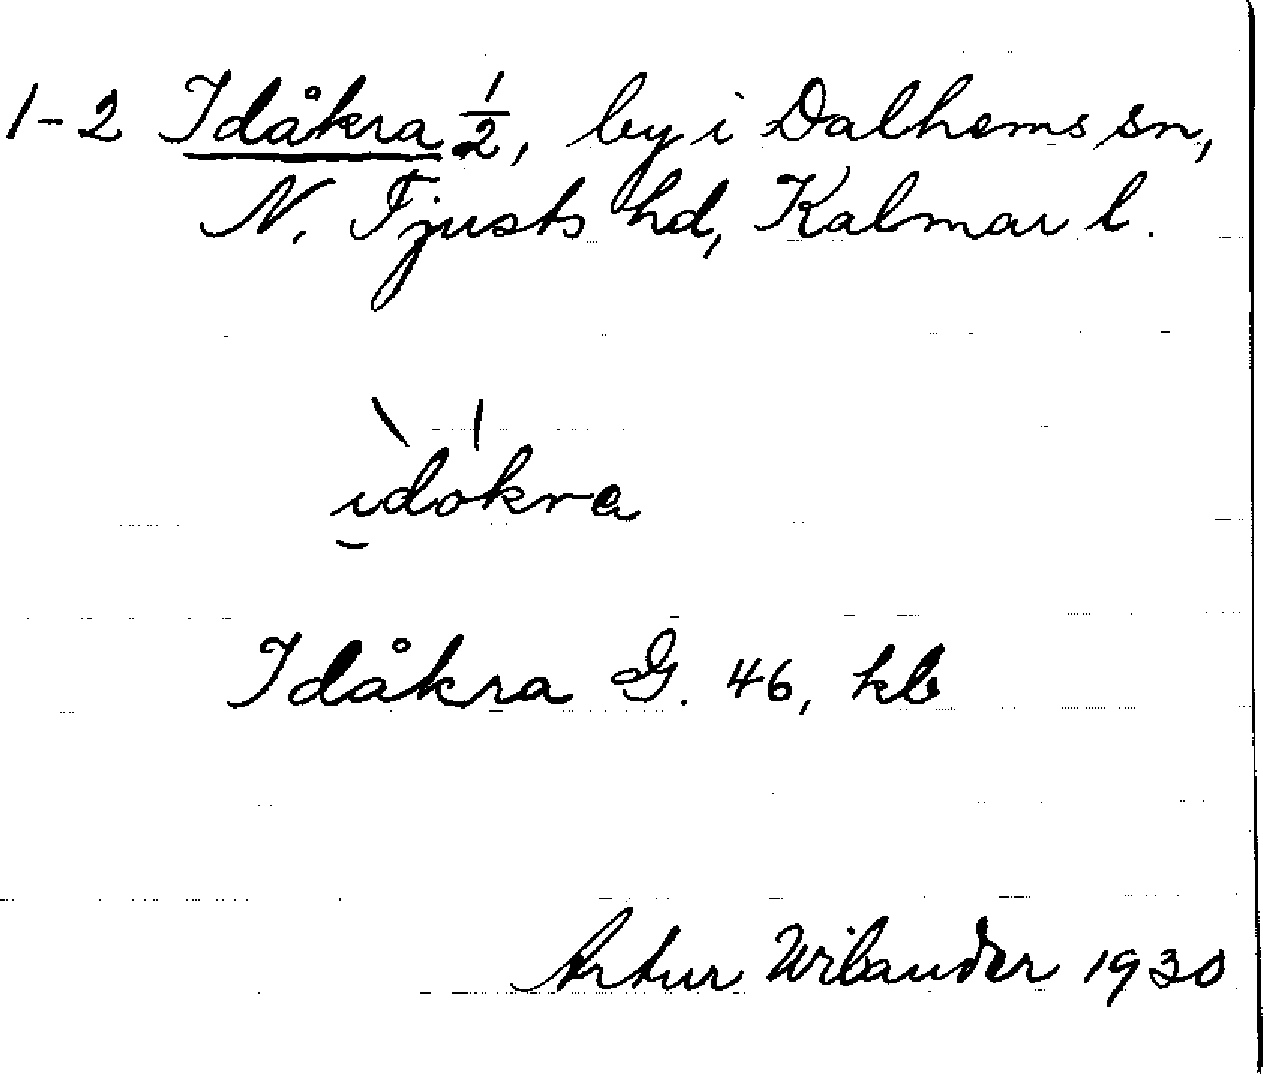 1-2 Idåkra 1/2, by i Dalhems sn,
N. Tjusts hd, Kalmar l.
ìdókra
Idåkra G. 46, kb
Artur Wilander 1930